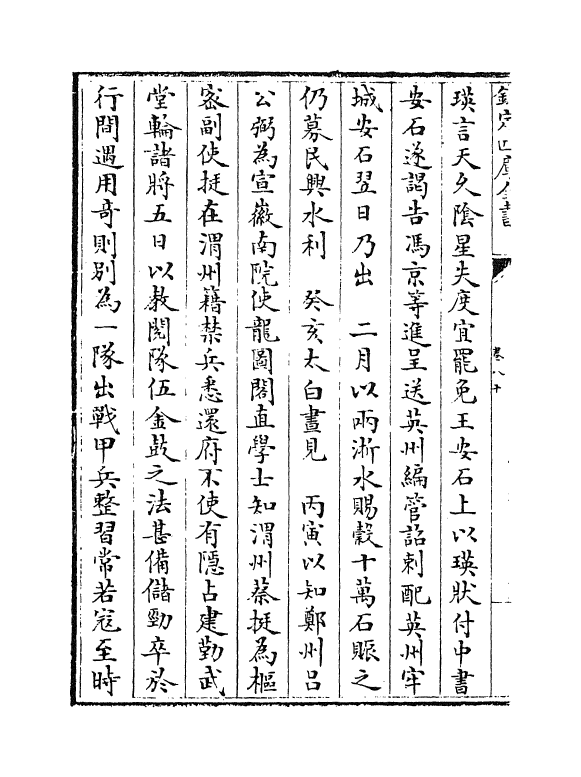 欽定四庫全書
卷八十
瑛言天久隂星失度宜罷免王安石上以瑛狀付中書
安石遂謁告馮京等進呈送英州編管詔刺配英州牢
城安石翌日乃出　二月以兩浙水賜穀十萬石賑之
仍募民興水利　癸亥太白晝見　丙寅以知鄭州吕
公弼為宣徽南院使龍圖閣直學士知渭州蔡挺為樞
宻副使挺在渭州籍禁兵悉還府不使有隱占建勤武
堂輪諸將五日以教閲隊伍金鼓之法甚備儲勁卒於
行間遇用竒則别為一隊出戰甲兵整習常若寇至時